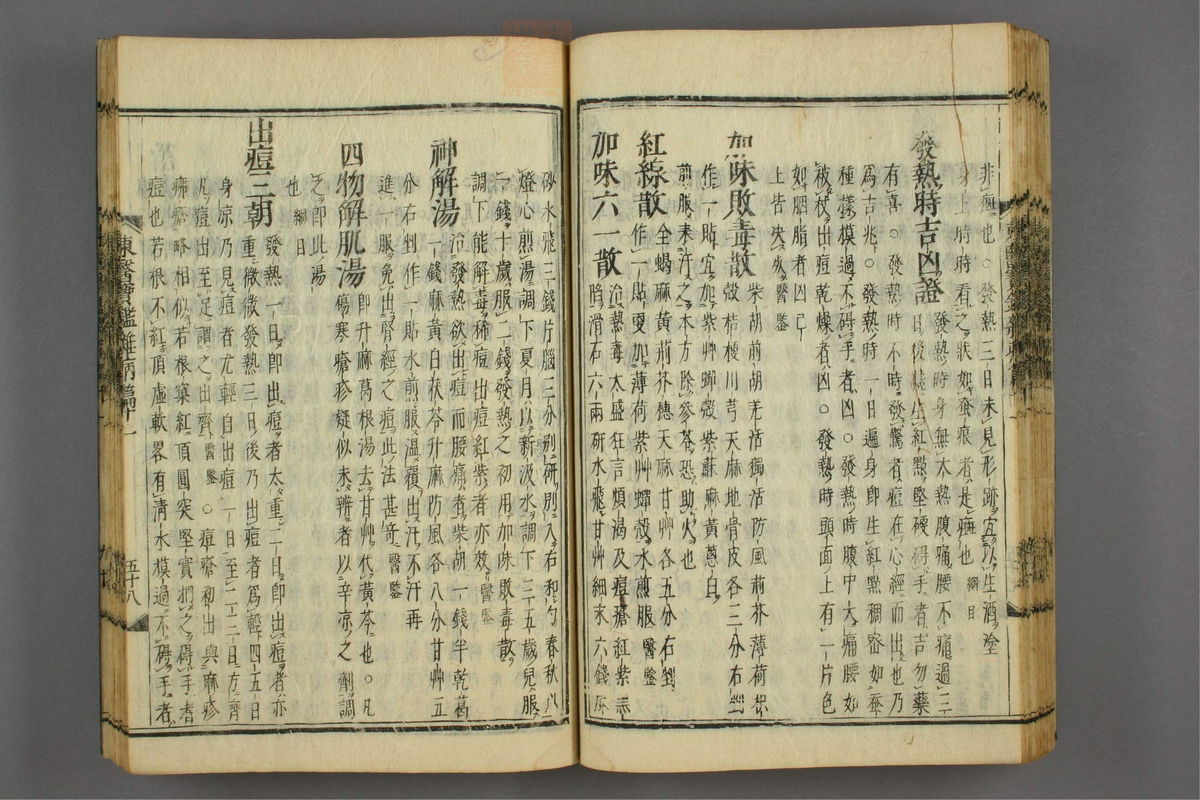 非癍也○發熱三日未見形跡宜以生酒塗
身上時時看之狀如蚤痕者是癍也 綱目
發熱時吉凶證 發熱時身無大熱腹痛腰不痛過三
日後纔生紅點堅硬碍手者吉勿藥
有喜○發熱時不時發驚者痘在心經而出也乃
爲吉兆○發熱時一日遍身卽生紅點稠密如蚕
種樣摸過不碍手者凶○發熱時腹中大痛腰如
被杖出痘乾燥者凶○發熱時頭面上有一片色
如胭脂者凶已
上皆 醫鑒
加味敗毒散 柴胡前胡羌活獨活防風荊芥薄荷枳
殼桔梗川芎天麻地骨皮各三分右剉
作一貼宜加紫艸蟬殼紫蘇麻黃葱白
煎服表汗之本方除參苓恐助火也
紅綿散 全蝎麻黃荊芥穗天麻甘艸各五分右剉
作一貼更加薄荷紫艸蟬殼水煎服 醫鑒
加味六一散 治熱毒太盛狂言煩渴及痘瘡紅紫黑
陷滑石六兩研水飛甘艸細末六錢辰
砂水飛三錢片腦三分別研別入右和勻春秋以
燈心煎湯調下夏月以新汲水調下三五歲兒服
一錢十歲服二錢發熱之初用加味敗毒散
調下能解毒稀痘出痘紅紫者亦效 醫鑒
神解湯 治發熱欲出痘而腰痛者柴胡一錢半乾葛
一錢麻黃白茯苓升麻防風各八分甘艸五
分右剉作一貼水煎服溫覆出汗不汗再
進一服免出腎經之痘此法甚奇 醫鑒
四物解肌湯 傷寒瘡疹疑似未辨者以辛凉之劑調
之卽此湯
卽升麻葛根湯去甘艸代黃芩也○凡
也 綱目
出痘三朝 發熱一日卽出痘者太重二日卽出痘者亦
重微微發熱三日後乃出痘者爲輕四五日
身凉乃見痘者尤輕自出痘一日至二三日方齊
凡痘出至足謂之出齊 醫鑒 ○痘瘡初出與麻疹
痱瘡略相似若根窠紅頂圓突堅實捫之碍手者
痘也若根不紅頂虛軟畧有淸水摸過不碍手者
東醫寶鑑雜病篇十一
五十八